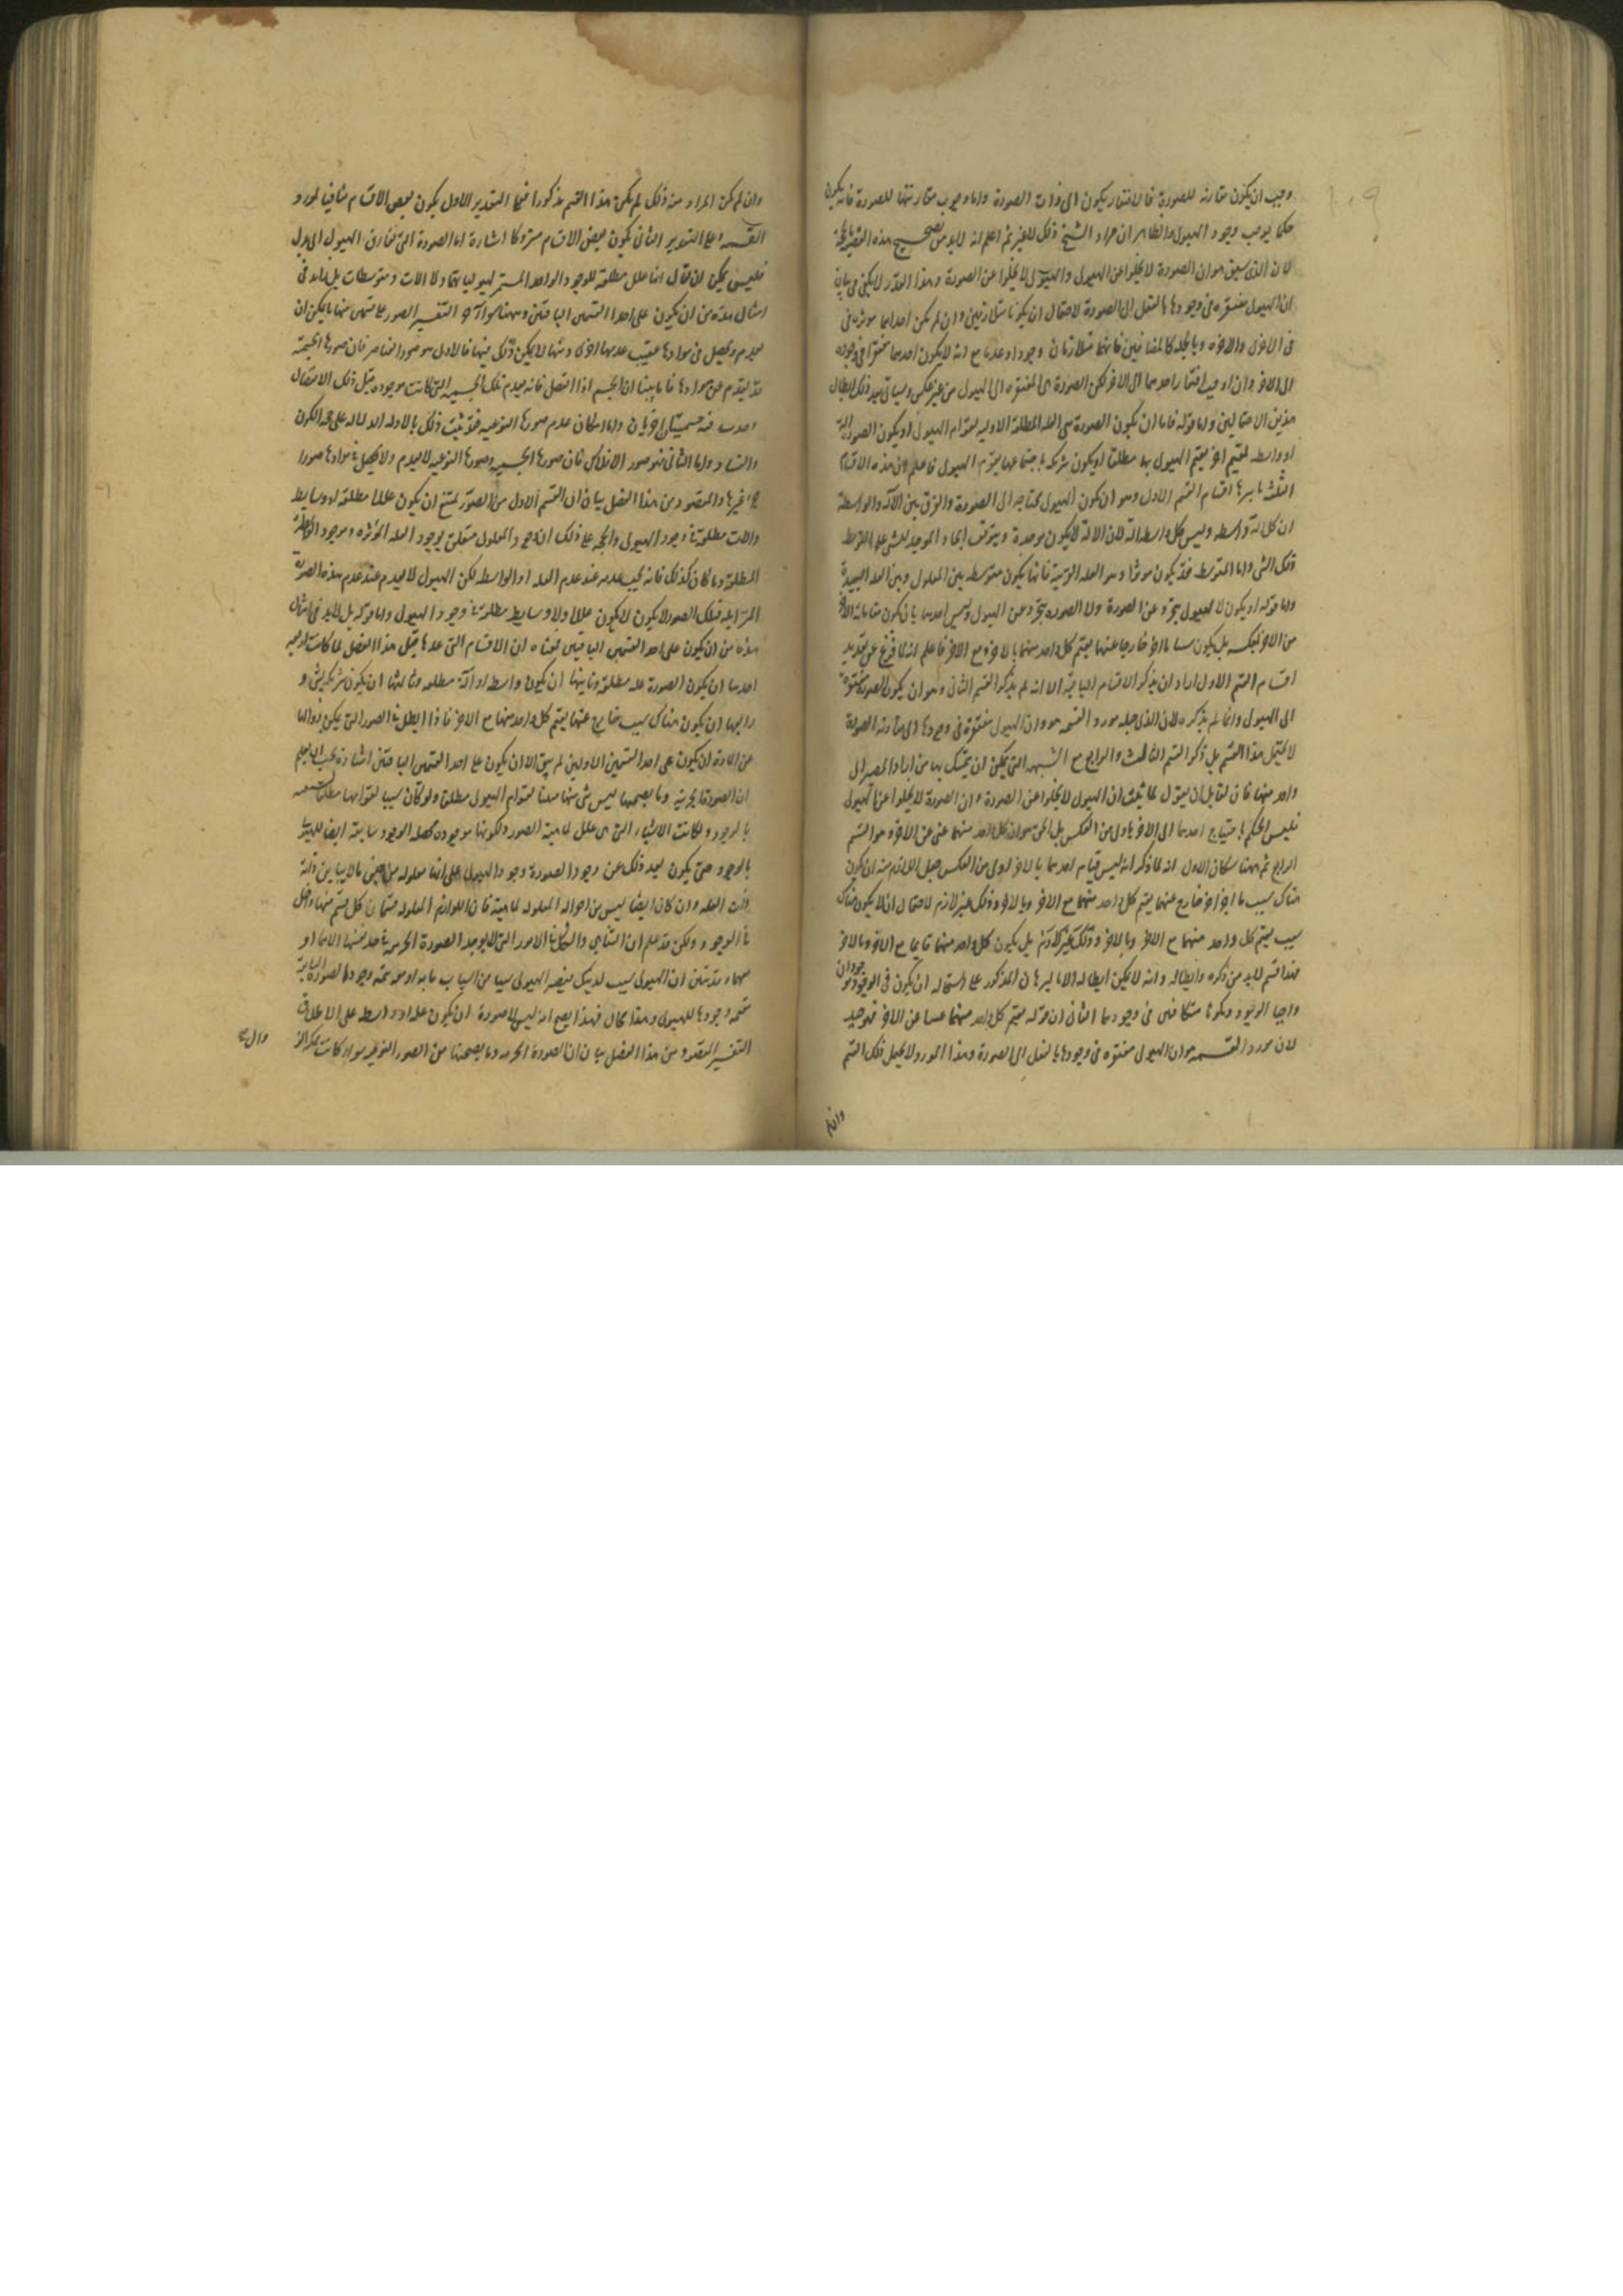 وجب ان يكون مقارنه للصورة فالافتقار يكون الى ذات الصورة واما وجوب مقارنتها للصورة فانه يكون
حكما يوجب وجود الهيولى والظاهر ان مراد الشيخ ذلك للغير ثم اعلم انه لابد من تصحيح هذه
لان الذى سبق هو ان الصورة لا يخلوا عن الهيولى والهيولى لا يخلوا عن الصورة وهذا القدر لا يكفى فى بيان
ان الهيولى مفتقره فى وجودها بالفعل الى الصورة لاحتمال ان يكونا متلازمين وان لم يكن احدهما موثره فى
فى الاخرى والاخره وبالجملة كالمضافين فانهما متلازمان وجودا وعدما مع انه لا يكون احدهما مفتقرا فى وجوده
الى الاخر وان اوجبت افتقار احدهما الى الاخر لكن الصورة هى المفتقره الى الهيولى من غير عكس وسياتى بعد ذلك ابطال
هذين الاحتمالين واما قوله فاما ان يكون الصورة هى العلة المطلقة الاولية لقوام الهيولى او يكون الصورة الة
او واسطه لمقيم اخر يقيم الهيولى بها مطلقا او يكون شريكه باجتماعهما يقوم الهيولى فاعلم ان هذه الاقسام
الثلثه باسرها اقسام القسم الاول وهو ان يكون الهيولى محتاجه الى الصورة والفرق بين الالة والواسطة
ان كل الة واسطه وليس كل واسطه الة لان الالة لا يكون موجدة ويتوقف ايجاد الموجد للشى على توسط
ذلك الشى واما المتوسط فقد يكون موثرا وهو العلة القريبة فانها يكون متوسطه بين المعلول وبين العلة البعيدة
واما قوله او يكون لا الهيولى تتجرد عن الصورة ولا الصورة تتجرد عن الهيولى وليس احدهما بان يكون مقاما به الاخر
من الاخر بعكسه بل يكون سببا ما اخر خارجا عنهما يقيم كل واحد منهما بالاخر ومع الاخر فاعلم انه لما فرغ عن تعديد
اقسام القسم الاول اراد ان يذكر الاقسام الباقية الا انه لم يذكر القسم الثانى وهو ان يكون الصورة مفتقرة
الى الهيولى وانما لم يذكره لان الذى جعله مورد القسمه هو ان الهيولى مفتقرة فى وجودها الى مقارنه الصورة
لا يحتمل هذا القسم بل ذكر القسم الثالث والرابع مع الشبهه التى يمكن ان يتمسك بها من اراد المصير الى
واحد منهما فان لقايل ان يقول لما ثبت ان الهيولى لا يخلوا عن الصورة وان الصورة لا يخلوا عن الهيولى
فليس الحكم باحتياج احدهما الى الاخر باولى من العكس بل الحق هو ان كل واحد منهما غنى عن الاخر وهو القسم
الرابع ثم ههنا شكان الاول انه لما ذكر انه ليس قيام احدهما بالاخر اولى من العكس جعل اللازم منه ان يكون
هناك سبب ما اخر خارج عنهما يقيم كل واحد منهما مع الاخر وبالاخر وذلك غير لازم لاحتمال ان لا يكون هناك
سبب يقيم كل واحد منهما مع الاخر وبالاخر وذلك غير لازم بل يكون كل واحد منهما قايما مع الاخر وبالاخر
فهذا قسم لابد من ذكره وابطاله وانه لا يمكن ابطاله الا بالبرهان المذكور على استحالة ان يكون فى الوجود موجودان
واجبا الوجود ويكونا متكافيين فى وجودهما الثانى ان قوله يقيم كل واحد منهما عن الاخر فهو جيد
لان مورد القسمه هو ان الهيولى مفتقره فى وجودها بالفعل الى الصورة وهذا المورد لا يحتمل ذلك القسم
وان لم
وان لم يكن المراد منه ذلك لم يكن هذا القسم مذكورا فعلى التقدير الاول يكون بعض الاقسام منافيا لمورد
القسمه وعلى التقدير الثانى يكون بعض الاقسام متروكا اشارة اما الصورة التى تفارق الهيولى الى بدل
فليس يمكن ان يقال انها علل مطلقه للوجود الواحد المستمر لهيولياتها ولا الات ومتوسطات بل لابد فى
امثال هذه من ان يكون على احد القسمين الباقيين وههنا التفسير الصور على قسمين منها ما يمكن ان
يعدم ويحصل فى موادها عقيب عدمها اخرى ومنها لا يمكن ذلك فيها فالاول هو صور العناصر فان صورها الجسمية
قد يعدم عن موادها فانا بينا ان الجسم اذا انفصل فانه يعدم تلك الجسمية التى كانت موجوده قبل ذلك الانفصال
وحدث فيه جسميتان اخريان واما امكان عدم صورها النوعيه فقد ثبت ذلك بالادله الداله على صحة الكون
والفساد واما الثانى فهو صور الافلاك فان صورها الجسمية وصورها النوعيه لا يعدم ولا يحصل فى موادها صورا
غيرها والمقصود من هذا الفصل بيان ان القسم الاول من الصور يمتنع ان يكون عللا مطلقة او وسايط
والات مطلقة فى وجود الهيولى والحجة على ذلك ان وجود المعلول متعلق بوجود العله المؤثره ووجود الواسطة
المطلقة وما كان كذلك فانه يجب عدمه عند عدم العلة او الواسطه لكن الهيولى لا يعدم عند عدم هذه الصورة
المزايله فتلك الصور لا يكون عللا ولا وسايط مطلقة فى وجود الهيولى واما قوله بل لابد فى امثال
هذه من ان يكون على احد القسمين الباقيين فمعناه ان الاقسام التى عدها قبل هذا الفصل لما كانت اربعة
احدها ان يكون الصورة علة مطلقة وثانيها ان يكون واسطه او الة مطلقه وثالثها ان يكون شريك لشى و
رابعها ان يكون هناك سبب خارج عنهما يقيم كل واحد منهما مع الاخر فاذا ابطل فى الصور التى يمكن زوالها
عن المادة ان يكون على احد القسمين الاولين لم يبق الا ان يكون على احد القسمين الباقيين اشارة يجب ان يعلم
ان الصورة الجرمية وما يصحبها ليس شى منها سببا لقوام الهيولى مطلقا ولو كان سببا لقوامها مطلقا لسبقها
بالوجود ولكانت الاشياء التى هى علل لماهية الصور ولكونها موجوده محصلة الوجود سابقة ايضا للهيولى
بالوجود حتى يكون بعد ذلك عن وجود الصورة وجود الهيولى على انها معلولة من جنس ما لا يباين ذاته
ذات العله وان كان ايضا ليس من احواله المعلوله لماهيته فان اللوازم المعلوله قسمان كل قسم منهما داخل
فى الوجود ولكن قد علم ان التناهى والتشكل من الامور التى لا يوجد الصورة الجرمية فى حد نفسها الا بهما او
معهما وقد تبين ان الهيولى سبب لذينك فيصير الهيولى سببا من اسباب ما به او معه يتم وجود الصورة السابقة
يتم وجودها للهيولى وهذا محال فهذا يصح انه ليس للصورة ان يكون علة او واسطه على الاطلاق
التفسير المقصود من هذا الفصل بيان ان الصورة الجرميه وما يصحبها من الصور النوعيه سواء كانت